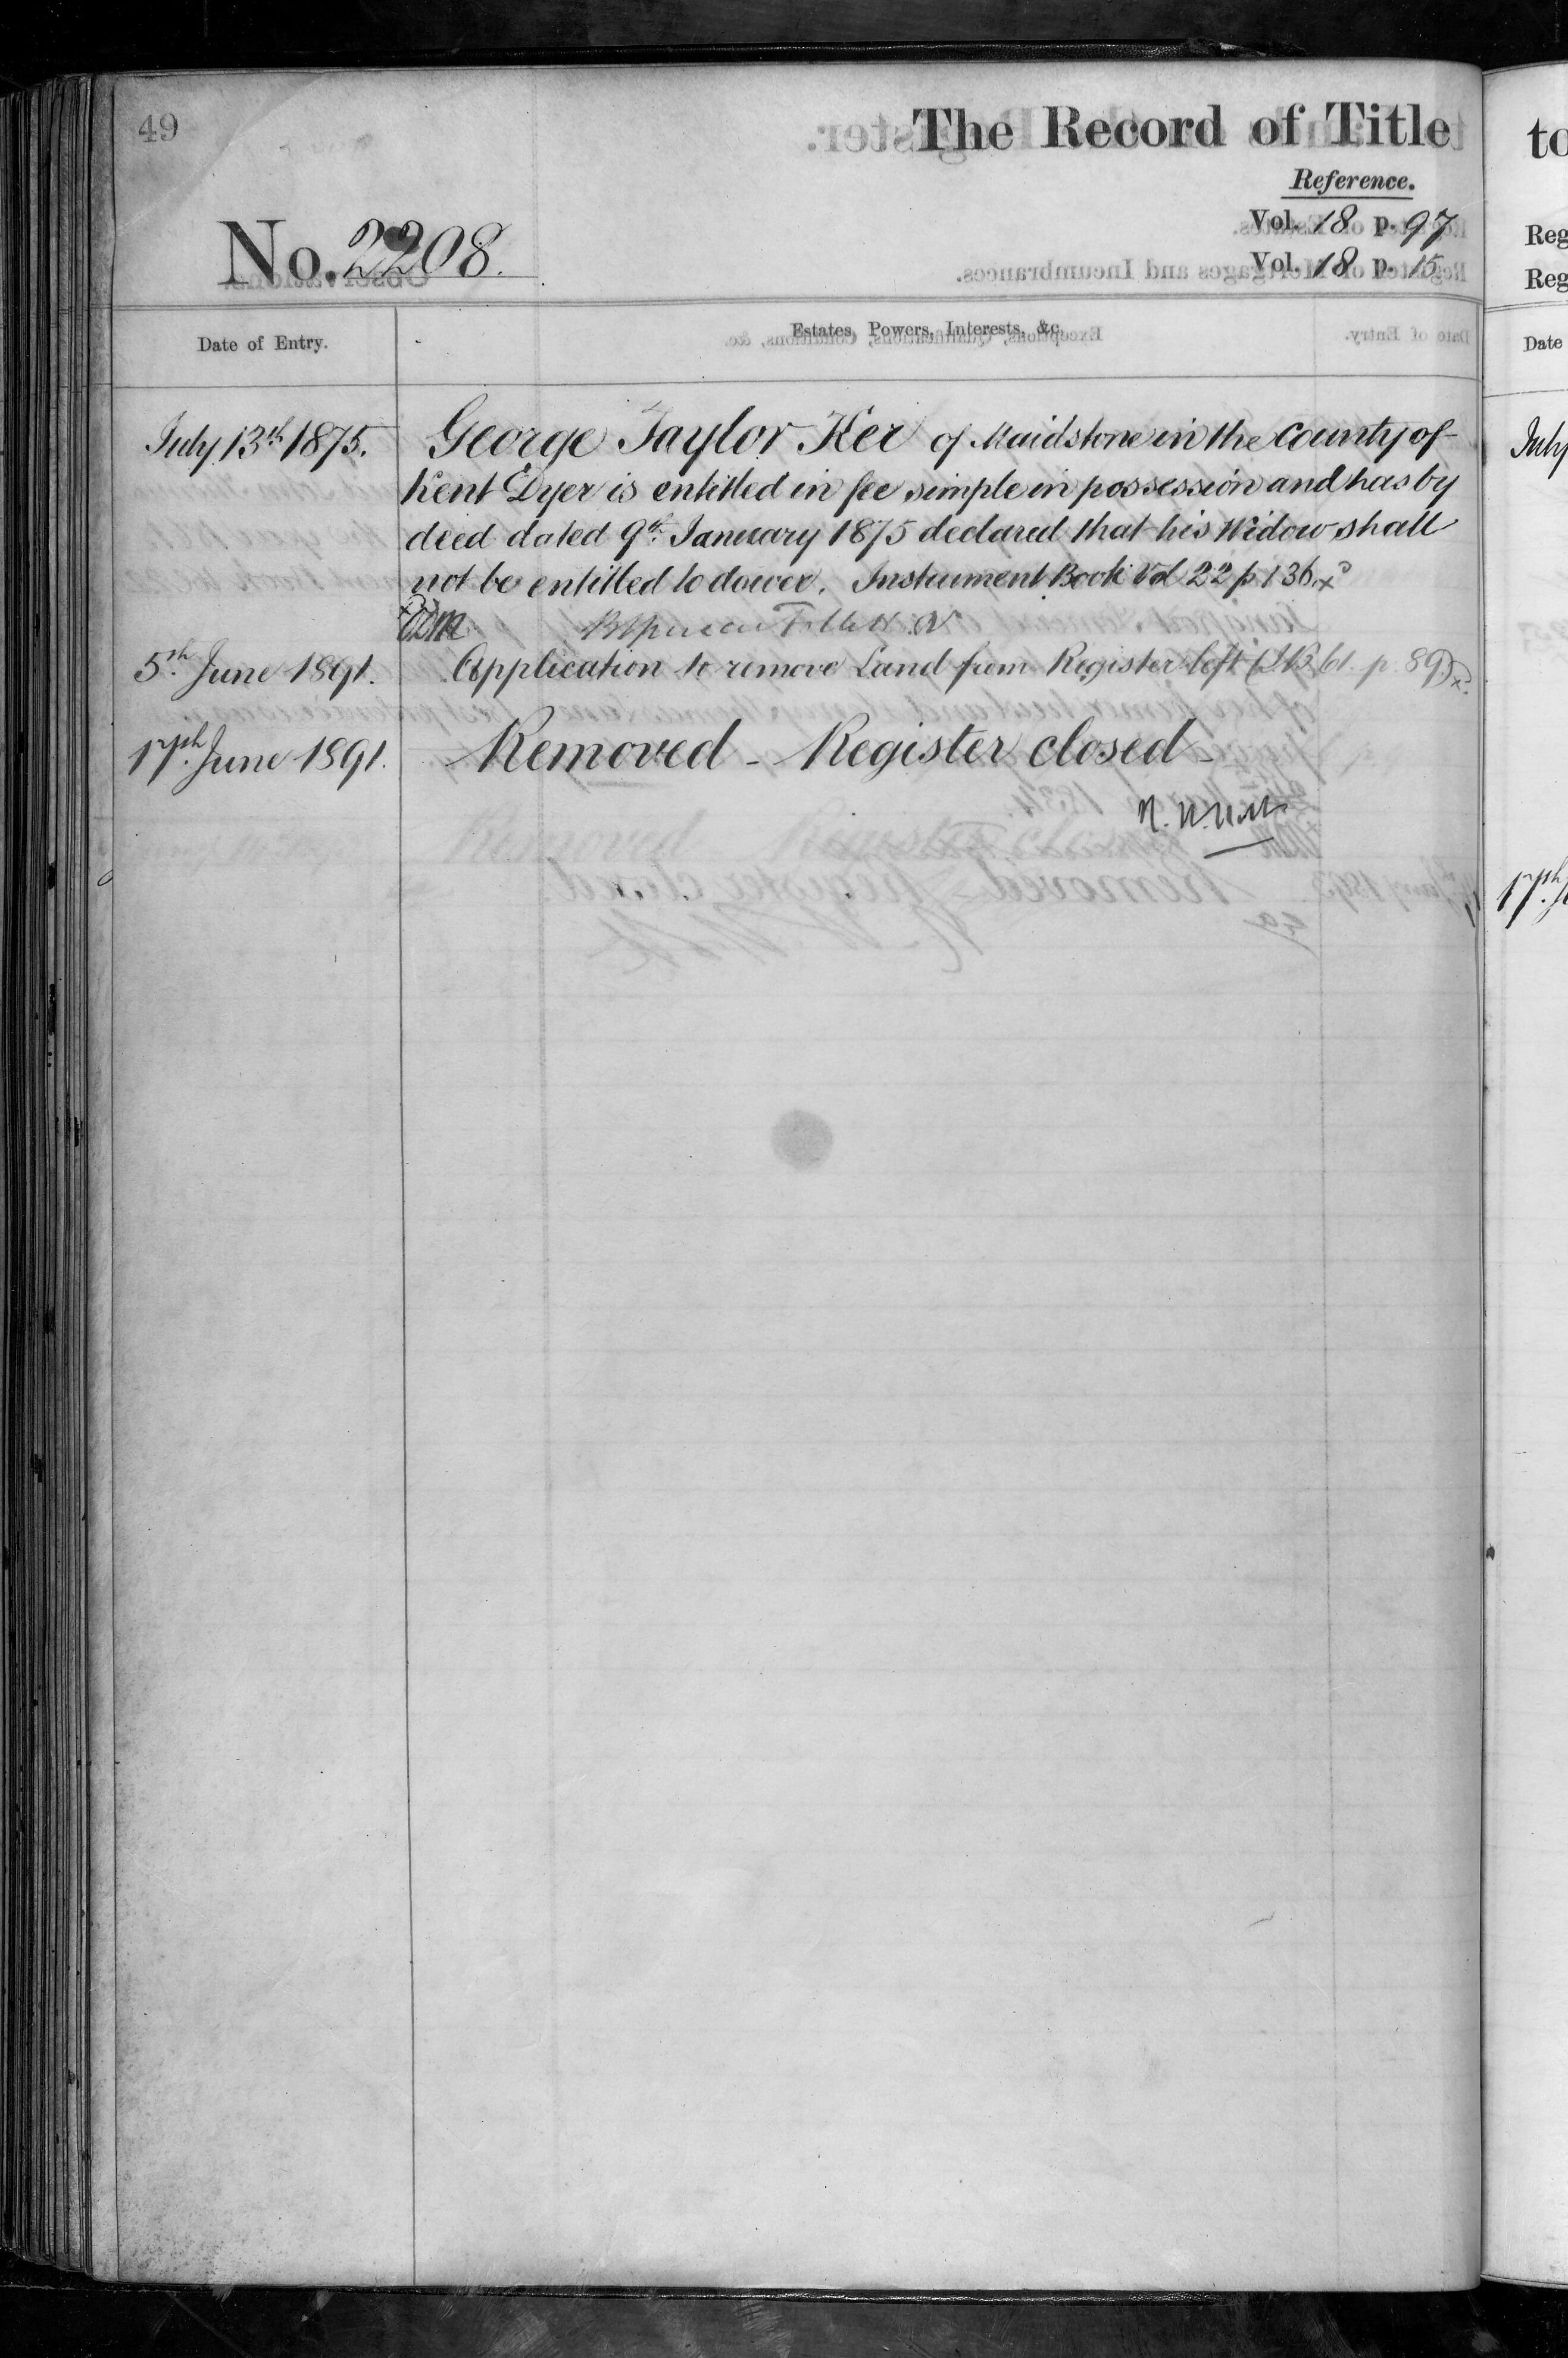 49
The Record of Title
Reference.
Vol. 18 p. 97
No. 2208.
Vol. 18 p. 15
Date of Entry.
Estates, Powers, Interests, &c.
July 13th 1875.
George Taylor Ker of Maidstone in the County of
Kent Dyer is entitled in fee simple in possession and has by
deed dated 9th January 1875 declared that his Widow shall
not be entitled to dower. Instrument Book Vol 22 p 136
5th June 1891.
Application to remove Land from Register left (I.B. 61. p. 89)
17th June 1891.
Removed - Register closed -
to
Reg
Reg
Date
July
17th